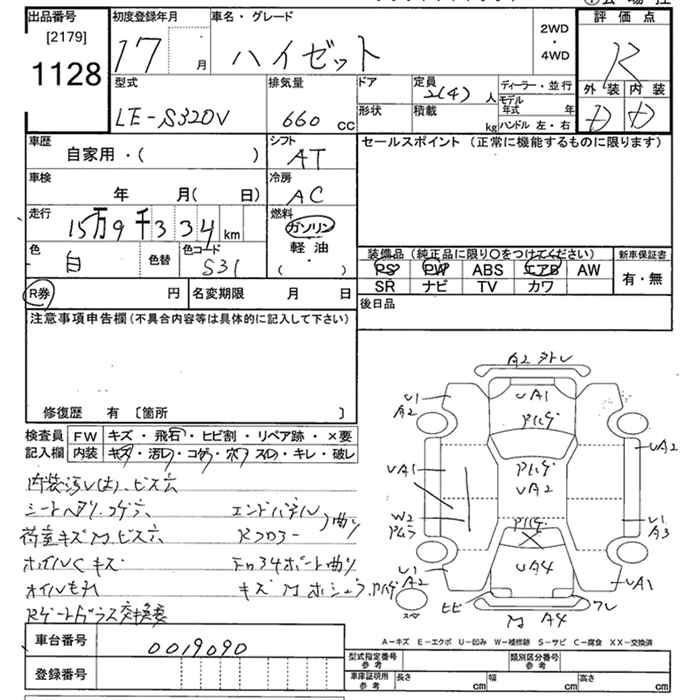 出品番号
[2179]
1128
初度登録年月
17 月
車名・グレード
ハイゼット
2WD
・
4WD
評価点
R
外装 内装
D D
型式
LE-S320V
排気量
660 CC
ドア
形状
定員
2(4) 人
積載
kg
ディーラー・並行
モデル年式 年
ハンドル 左・右
車歴
自家用・( )
シフト
AT
車検
年 月( 日)
冷房
AC
走行
15万9千334 km
燃料
ガソリン
軽油
( ・ )
色
白
色替
色コード
S31
R券 円
名変期限 月 日
セールスポイント (正常に機能するものに限ります)
装備品 (純正品に限り〇をつけてください)
新車保証書
PS PW ABS エアB AW
SR ナビ TV カワ
有・無
後日品
注意事項申告欄 (不具合内容等は具体的に記入して下さい)
修復歴 有 〔箇所 〕
検査員 FW キズ・飛石・ヒビ割・リペア跡・×要
記入欄 内装 キズ・汚レ・コゲ・穴・スレ・キレ・破レ
内装汚レ(大).ビス穴
シートヘタリ.コゲ穴
荷室キズM.ビス穴
ホイルCキズ
オイルもれ
Rゲートガラス交換要
エンドパネル
Rフロアー
曲り
キズM
A2
UA1
U1
A2
UA2
UA1
UA2
W2
U1
A3
U1
A2
UA4
UA1
ヒビ
M A4
スペア
A-キズ E-エクボ U-凹み W-補修跡 S-サビ C-腐食 XX-交換済
車台番号
0019090
登録番号
型式指定番号
参考
類別区分番号
参考
車庫証明所
参考
長さ cm
幅 cm
高さ cm